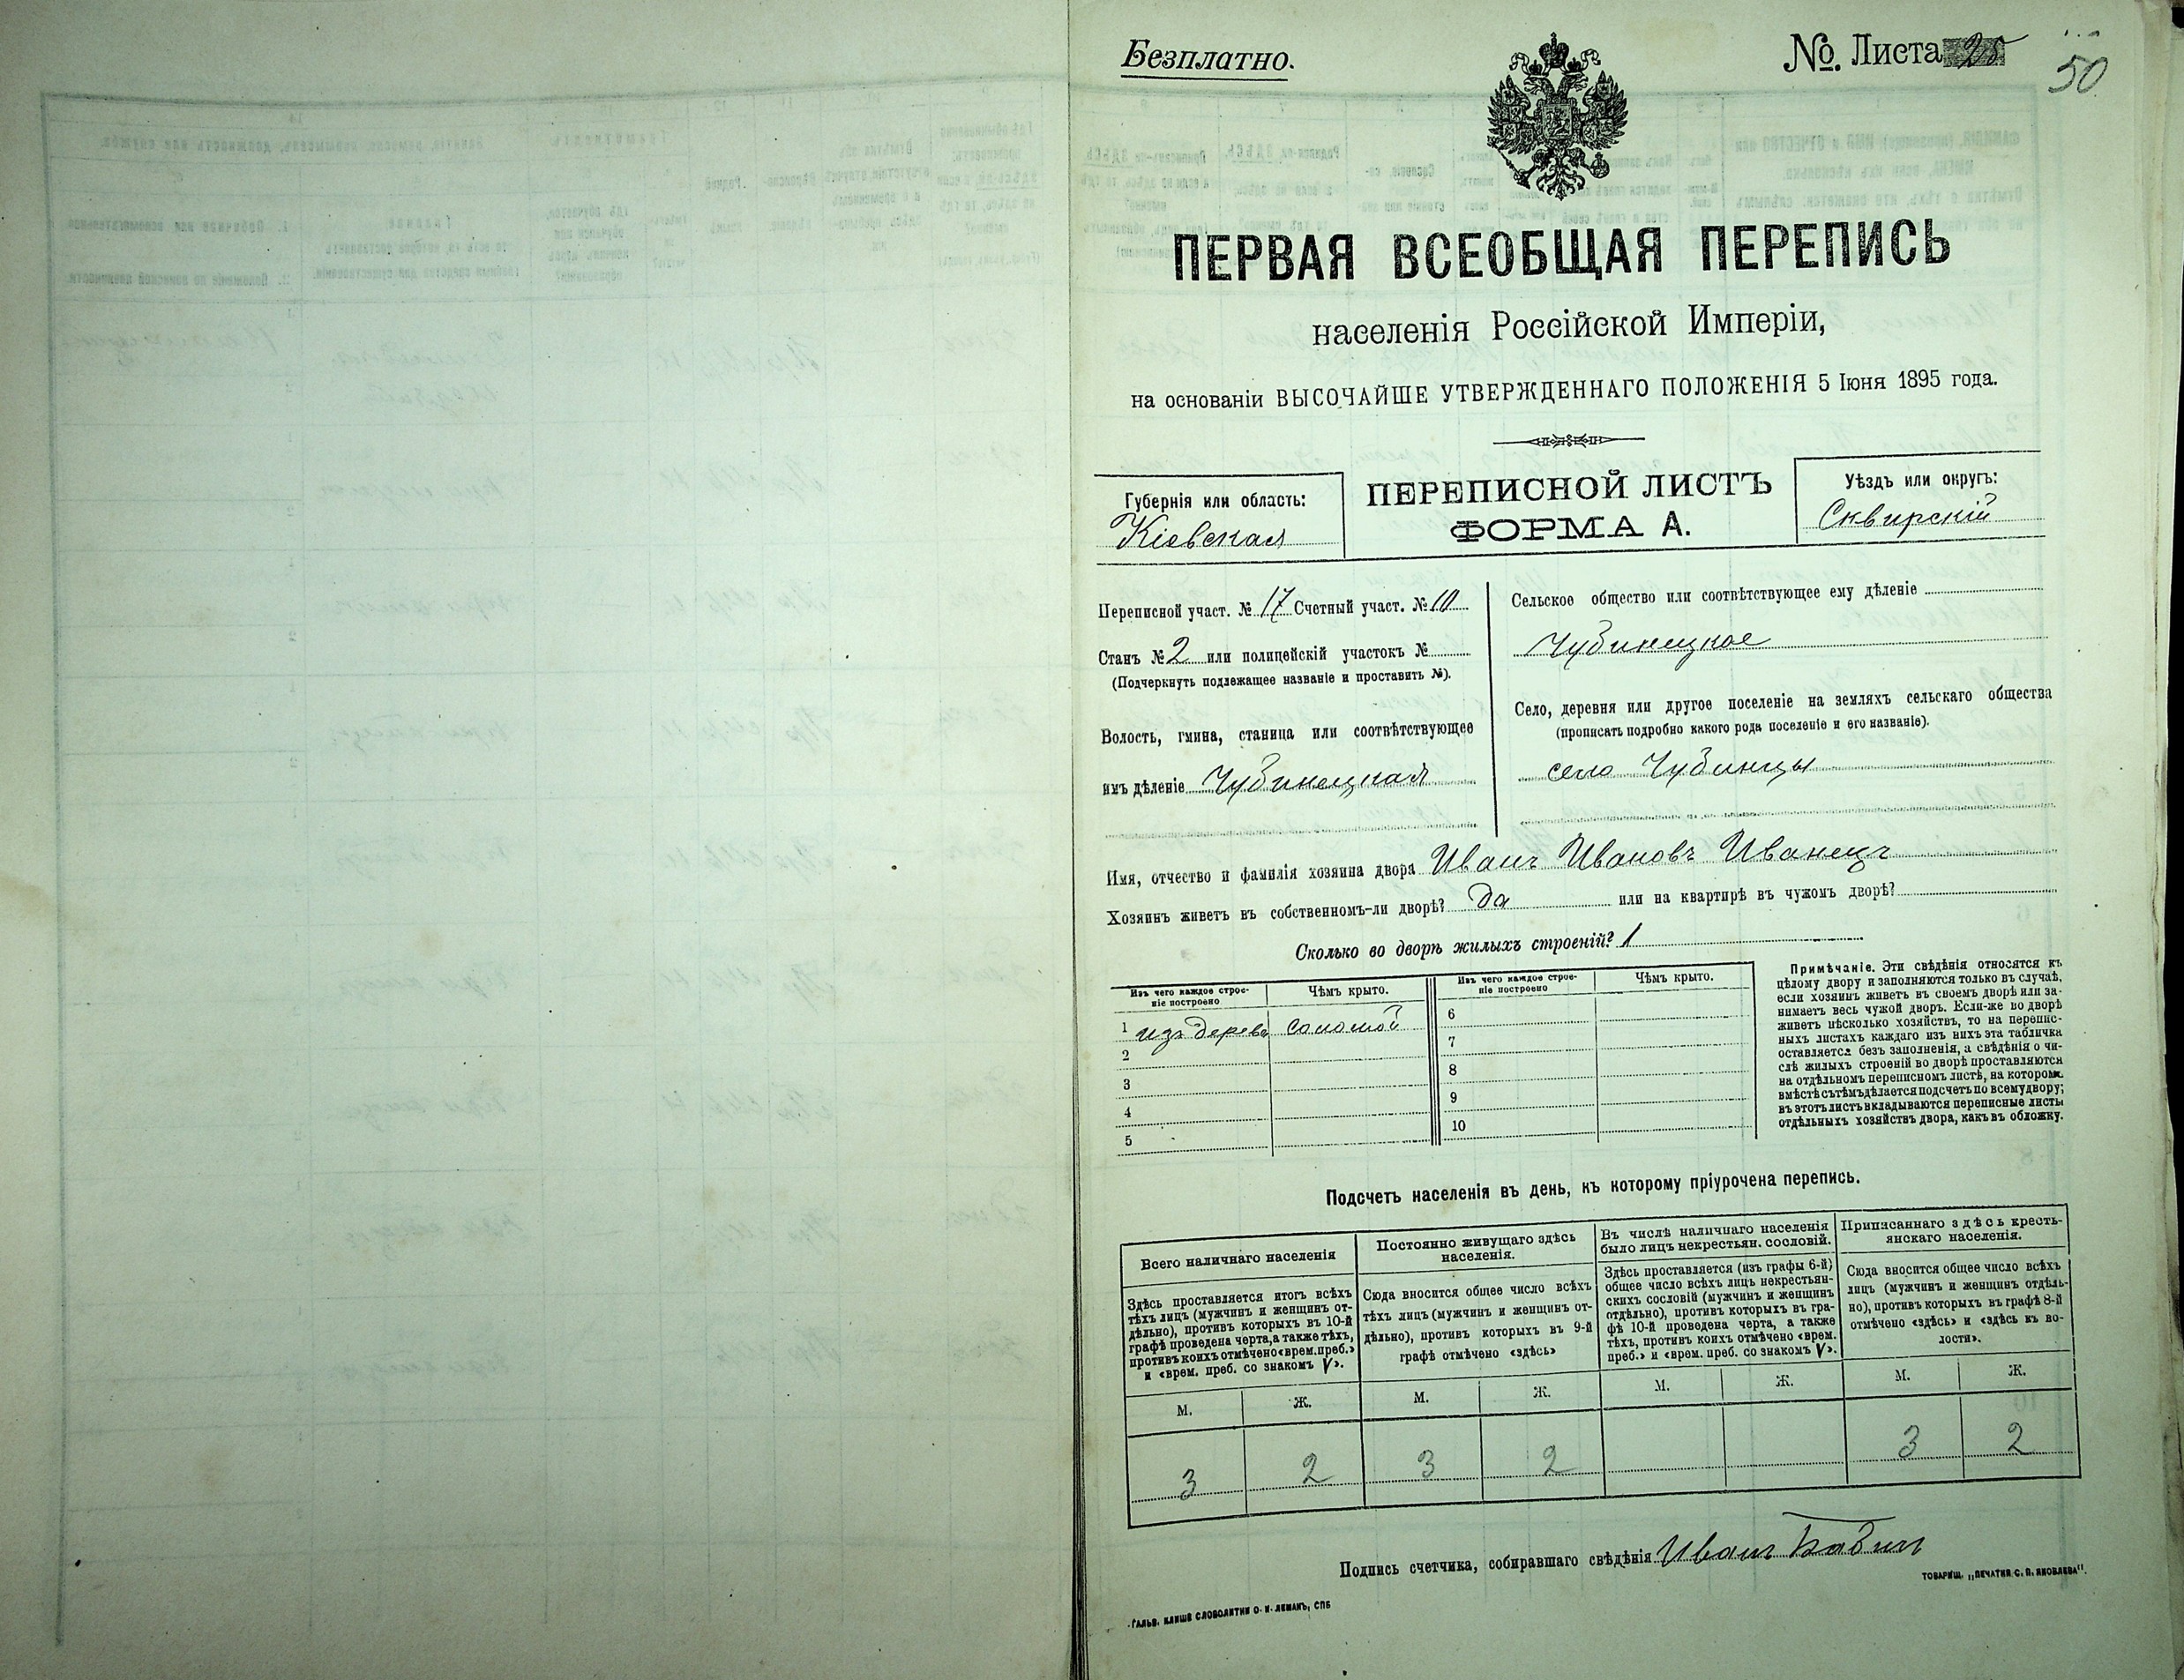 Безплатно.
№. Листа 25
50
ПЕРВАЯ ВСЕОБЩАЯ ПЕРЕПИСЬ
населенія Россійской Имперіи,
на основаніи ВЫСОЧАЙШЕ УТВЕРЖДЕННАГО ПОЛОЖЕНІЯ 5 Іюня 1895 года.
Губернія или область:
Кіевская
ПЕРЕПИСНОЙ ЛИСТЪ
ФОРМА А.
Уѣздъ или округъ:
Сквирскій
Переписной участ. № 17 Счетный участ. № 10
Станъ № 2 или полицейскій участокъ №
(Подчеркнуть подлежащее названіе и проставить №).
Волость, гмина, станица или соотвѣтствующее
имъ дѣленіе Чубинецкая
Сельское общество или соотвѣтствующее ему дѣленіе
Чубинецкое
Село, деревня или другое поселеніе на земляхъ сельскаго общества
(прописать подробно какого рода поселеніе и его названіе).
село Чубинцы
Имя, отчество и фамилія хозяина двора Иванъ Ивановъ Иванецъ
Хозяинъ живетъ въ собственномъ-ли дворѣ? Да или на квартирѣ въ чужомъ дворѣ?
Сколько во дворѣ жилыхъ строеній? 1
Изъ чего каждое строе-
ніе построено
Чѣмъ крыто.
Изъ чего каждое строе-
ніе построено
Чѣмъ крыто.
1 изъ дерева соломой
2
3
4
5
6
7
8
9
10
Примѣчаніе. Эти свѣдѣнія относятся къ
цѣлому двору и заполняются только въ случаѣ,
если хозяинъ живетъ въ своемъ дворѣ или за-
нимаетъ весь чужой дворъ. Если-же во дворѣ
живетъ нѣсколько хозяйствъ, то на перепис-
ныхъ листахъ каждаго изъ нихъ эта табличка
оставляется безъ заполненія, а свѣдѣнія о чи-
слѣ жилыхъ строеній во дворѣ проставляются
на отдѣльномъ переписномъ листѣ, на которомъ
вмѣстѣ съ тѣмъ дѣлается подсчетъ по всему двору;
въ этотъ листъ вкладываются переписные листы
отдѣльныхъ хозяйствъ двора, какъ въ обложку.
Подсчетъ населенія въ день, къ которому пріурочена перепись.
Всего наличнаго населенія
Здѣсь проставляется итогъ всѣхъ
тѣхъ лицъ (мужчинъ и женщинъ от-
дѣльно), противъ которыхъ въ 10-й
графѣ проведена черта, а также тѣхъ,
противъ коихъ отмѣчено «врем. преб.»
и «врем. преб. со знакомъ V».
Постоянно живущаго здѣсь
населенія.
Сюда вносится общее число всѣхъ
тѣхъ лицъ (мужчинъ и женщинъ от-
дѣльно), противъ которыхъ въ 9-й
графѣ отмѣчено «здѣсь»
Въ числѣ наличнаго населенія
было лицъ некрестьян. сословій.
Здѣсь проставляется (изъ графы 6-й)
общее число всѣхъ лицъ некрестьян-
скихъ сословій (мужчинъ и женщинъ
отдѣльно), противъ которыхъ въ гра-
фѣ 10-й проведена черта, а также
тѣхъ, противъ коихъ отмѣчено «врем.
преб.» и «врем. преб. со знакомъ V».
Приписаннаго здѣсь кресть-
янскаго населенія.
Сюда вносится общее число всѣхъ
лицъ (мужчинъ и женщинъ отдѣль-
но), противъ которыхъ въ графѣ 8-й
отмѣчено «здѣсь» и «здѣсь къ во-
лости».
М. Ж. М. Ж. М. Ж. М. Ж.
3 2 3 2 3 2
Подпись счетчика, собиравшаго свѣдѣнія Иванъ Бабич
ТОВАРИЩ. „ПЕЧАТНЯ С. П. ЯКОВЛЕВА".
Гальв. клише словолитни О. И. Леманъ, СПБ